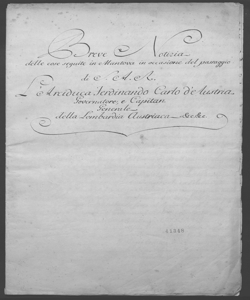 Breve Notizia
delle cose seguite in Mantova in occasione del passaggio
di S. A. R.
L'Arciduca Ferdinando Carlo d'Austria
Governatore, e Capitan
Generale
della Lombardia Austriaca